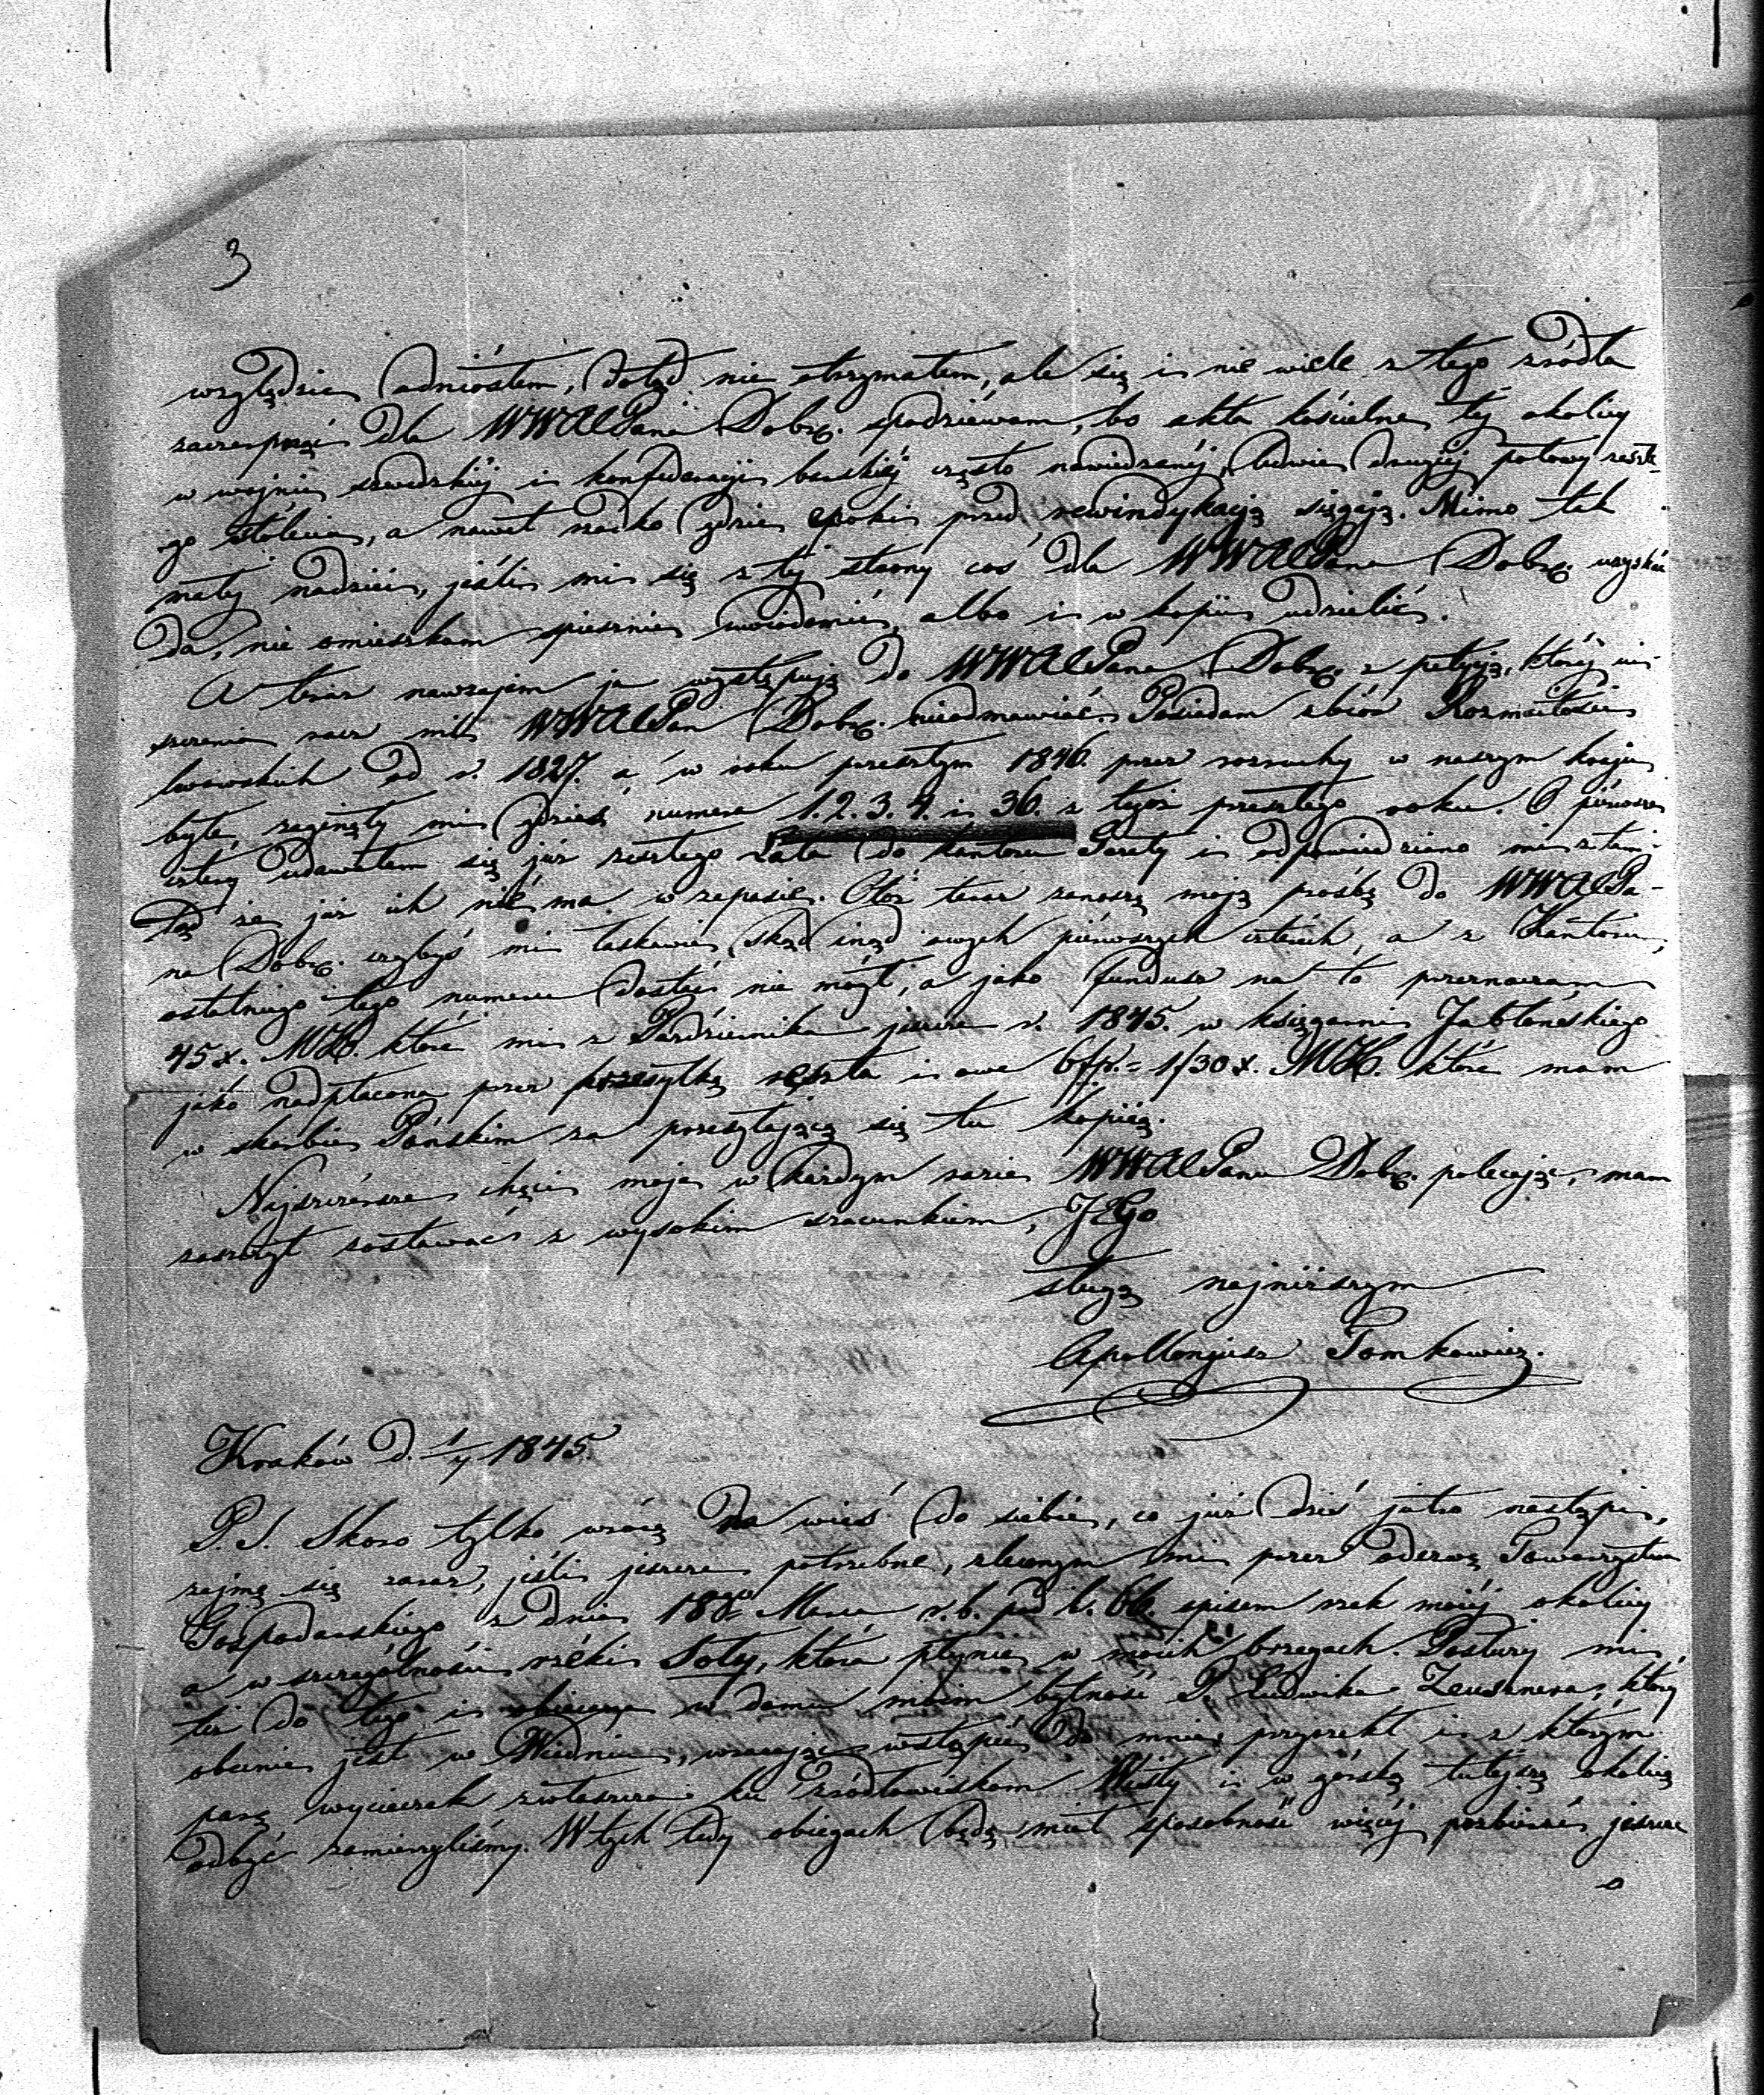 3
względzie odniosłem, dotąd nie otrzymałem, ale się i nie wiele z tego źródła
zaczerpnąć dla WWALPana Dobr. spodziéwam, bo akta kościelne téj okolicy
w wojnie szwedzkiéj i konfederacji barskiéj często nawiedzanéj, ledwie drugiéj połowy zeszłe-
go stólecia, a nawet rzadko gdzie epoki przed rewindykacją sięgają. Mimo tak
małéj nadziei, jeśli mi się z téj strony coś dla WWALPana Dobr. uzyskać
da, nie omieszkam spiesznie uwiadomić, albo i w kopii udzielić.
A teraz nawzajem ja występuję do WWALPana Dobr. z petycją, któréj
racz mi WWALPan Dobr. nieodmawiać. Posiadam zbiór Rozmaitości
lwowskich od r. 1827. a w roku przeszłym 1846. przez rozruchy w naszym kraju
byłe, zaginęły mi gdzieś numera 1. 2. 3. 4. i 36. z tegóż przeszłego roku. O piérwsze
cztery udawałem się już zeszłego Lata do kantoru Gazety i odpowiedziano mi ztam-
tąd że już ich niéma w zapasie. Otóż teraz zanoszę moją prośbę do WWALPa-
na Dobr. czybyś mi łaskawie skąd inąd owych piérwszych cztérech, a z Kantoru,
ostatniego tego numeru dostać nie mógł, a jako fundusz na to przeznaczam
45 x. MK. które mi z Paździérnika jeszcze r. 1845. w księgarni Jabłońskiego
jako nadpłacona przez przesyłkę reszta i owe 6 fp. = 1f 30 x. MK. które mam
w skarbie Pańskim za przesyłającą się tu kopiją.
Najszczérsze chęci moje w każdym razie WWALPanu Dobr. polecając, mam
zaszczyt zostawać z wysokim szacunkiem, JEgo
sługą najniższym
Apolloniusz Tomkowicz.
Kraków d. 1/4 1845
P.S. Skoro tylko wrócę na wieś do siebie, co już dziś jutro nastąpi,
zajmę się zaraz, jeśli jeszcze potrzebne, zleconym mi przez odezwę Towarzystwa
Gospodarskiego z dnia 18go Marca r. b. pod l. 66. spisem rzek mojéj okolicy
a w szczególności rzéki Soły, która płynie w moich brzegach. Posłuży mi
też do tego i obiecana w domu moim bytność P. Ludwika Zeuschnera, który
obecnie jest w Wiedniu, wracając wstąpić do mnie przyrzekł i z którym
parę wycieczek zwłaszcza ku źródłowiskom Wisły i w górską tutejszą okolicę
odbyć zamierzyliśmy. W tych tedy obiegach będę miał sposobność więcéj pozbiérać jeszcze